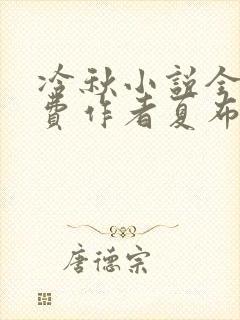 冷秋小说全
费作者夏布
唐德宗